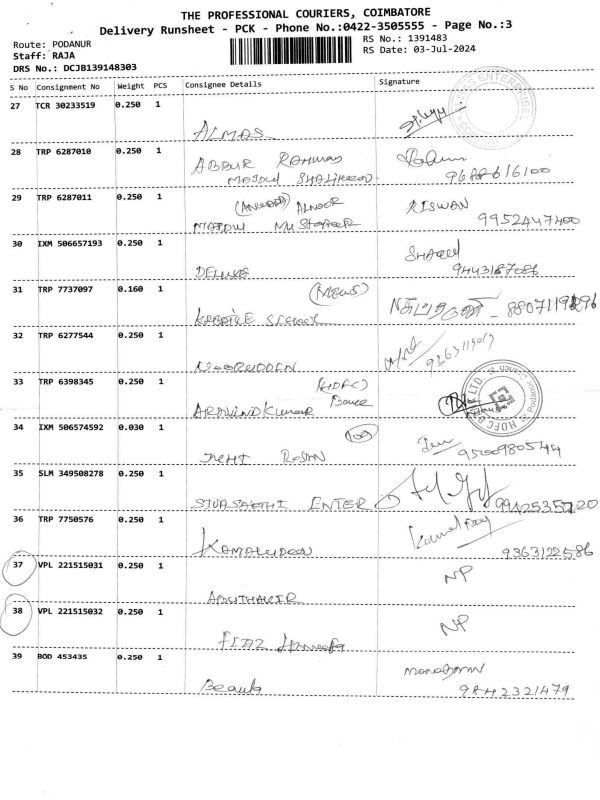 THE PROFESSIONAL COURIERS, COIMBATORE
Delivery Runsheet - PCK - Phone No.:0422-3505555 - Page No.:3
Route: PODANUR
RS No.: 1391483
Staff: RAJA
RS Date: 03-Jul-2024
DRS No.: DCJB139148303
S No Consignment No Weight PCS Consignee Details Signature
27 TCR 30233519 0.250 1
ALMAS
28 TRP 6287010 0.250 1
ABDUR RAHMAN
9688616100
29 TRP 6287011 0.250 1
ALNOOR RISWAN
9952447400
30 IXM 506657193 0.250 1
9443187086
31 TRP 7737097 0.160 1
(News)
32 TRP 6277544 0.250 1
NOORUDDEN
33 TRP 6398345 0.250 1
(HDFC)
ARAVIND Kumar
HDFC BANK LTD.
34 IXM 506574592 0.030 1
9500980544
35 SLM 349508278 0.250 1
SIVASAKTHI ENTER
36 TRP 7750576 0.250 1
KAMALUDEEN 9363122586
37 VPL 221515031 0.250 1 NP
ABUTHAKIR
38 VPL 221515032 0.250 1 NP
39 BOD 453435 0.250 1
Beaula 9842321479